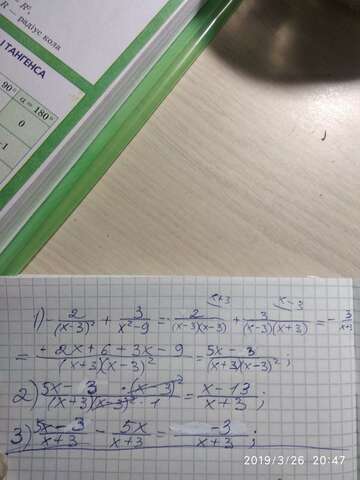 = R²,
R — радіус кола
І ТАНГЕНСА
90° α = 180°
0
-1
x+3 x-3
1) 2/(x-3)² + 3/(x²-9) = 2/((x-3)(x-3)) + 3/((x-3)(x+3)) =
= (2x+6+3x-9)/((x+3)(x-3)²) = (5x-3)/((x+3)(x-3)²);
2) (5x-3 · (x-3)²)/((x+3)(x-3)² · 1) = (x-13)/(x+3);
3) (5x-3)/(x+3) - 5x/(x+3) = -3/(x+3);
2019/3/26 20:47